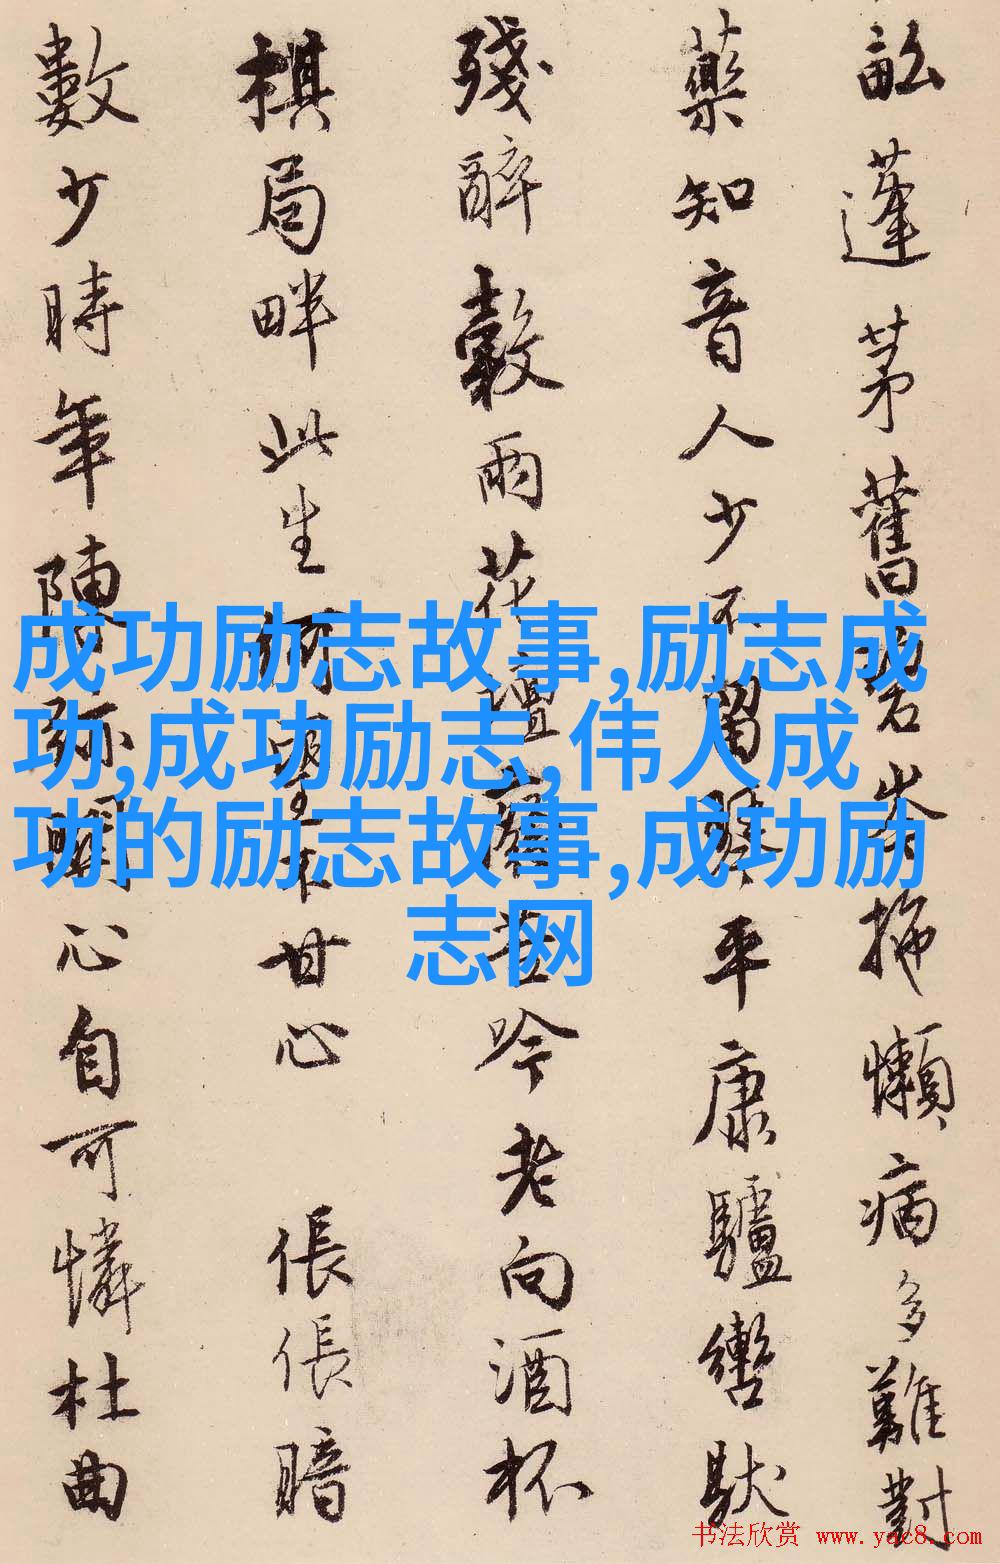 畝蓬茅舊 岑拖懶病多難對
藥知音人少不留 平康驢轡馱
殘醉數雨花壇 吟老向酒杯
棋局畔此生 甘心 倀倀暗
數少時年陳 心自可憐杜曲
成功励志故事,励志成
功,成功励志,伟人成
功的励志故事,成功励
志网
书法欣赏 www.yac8.com